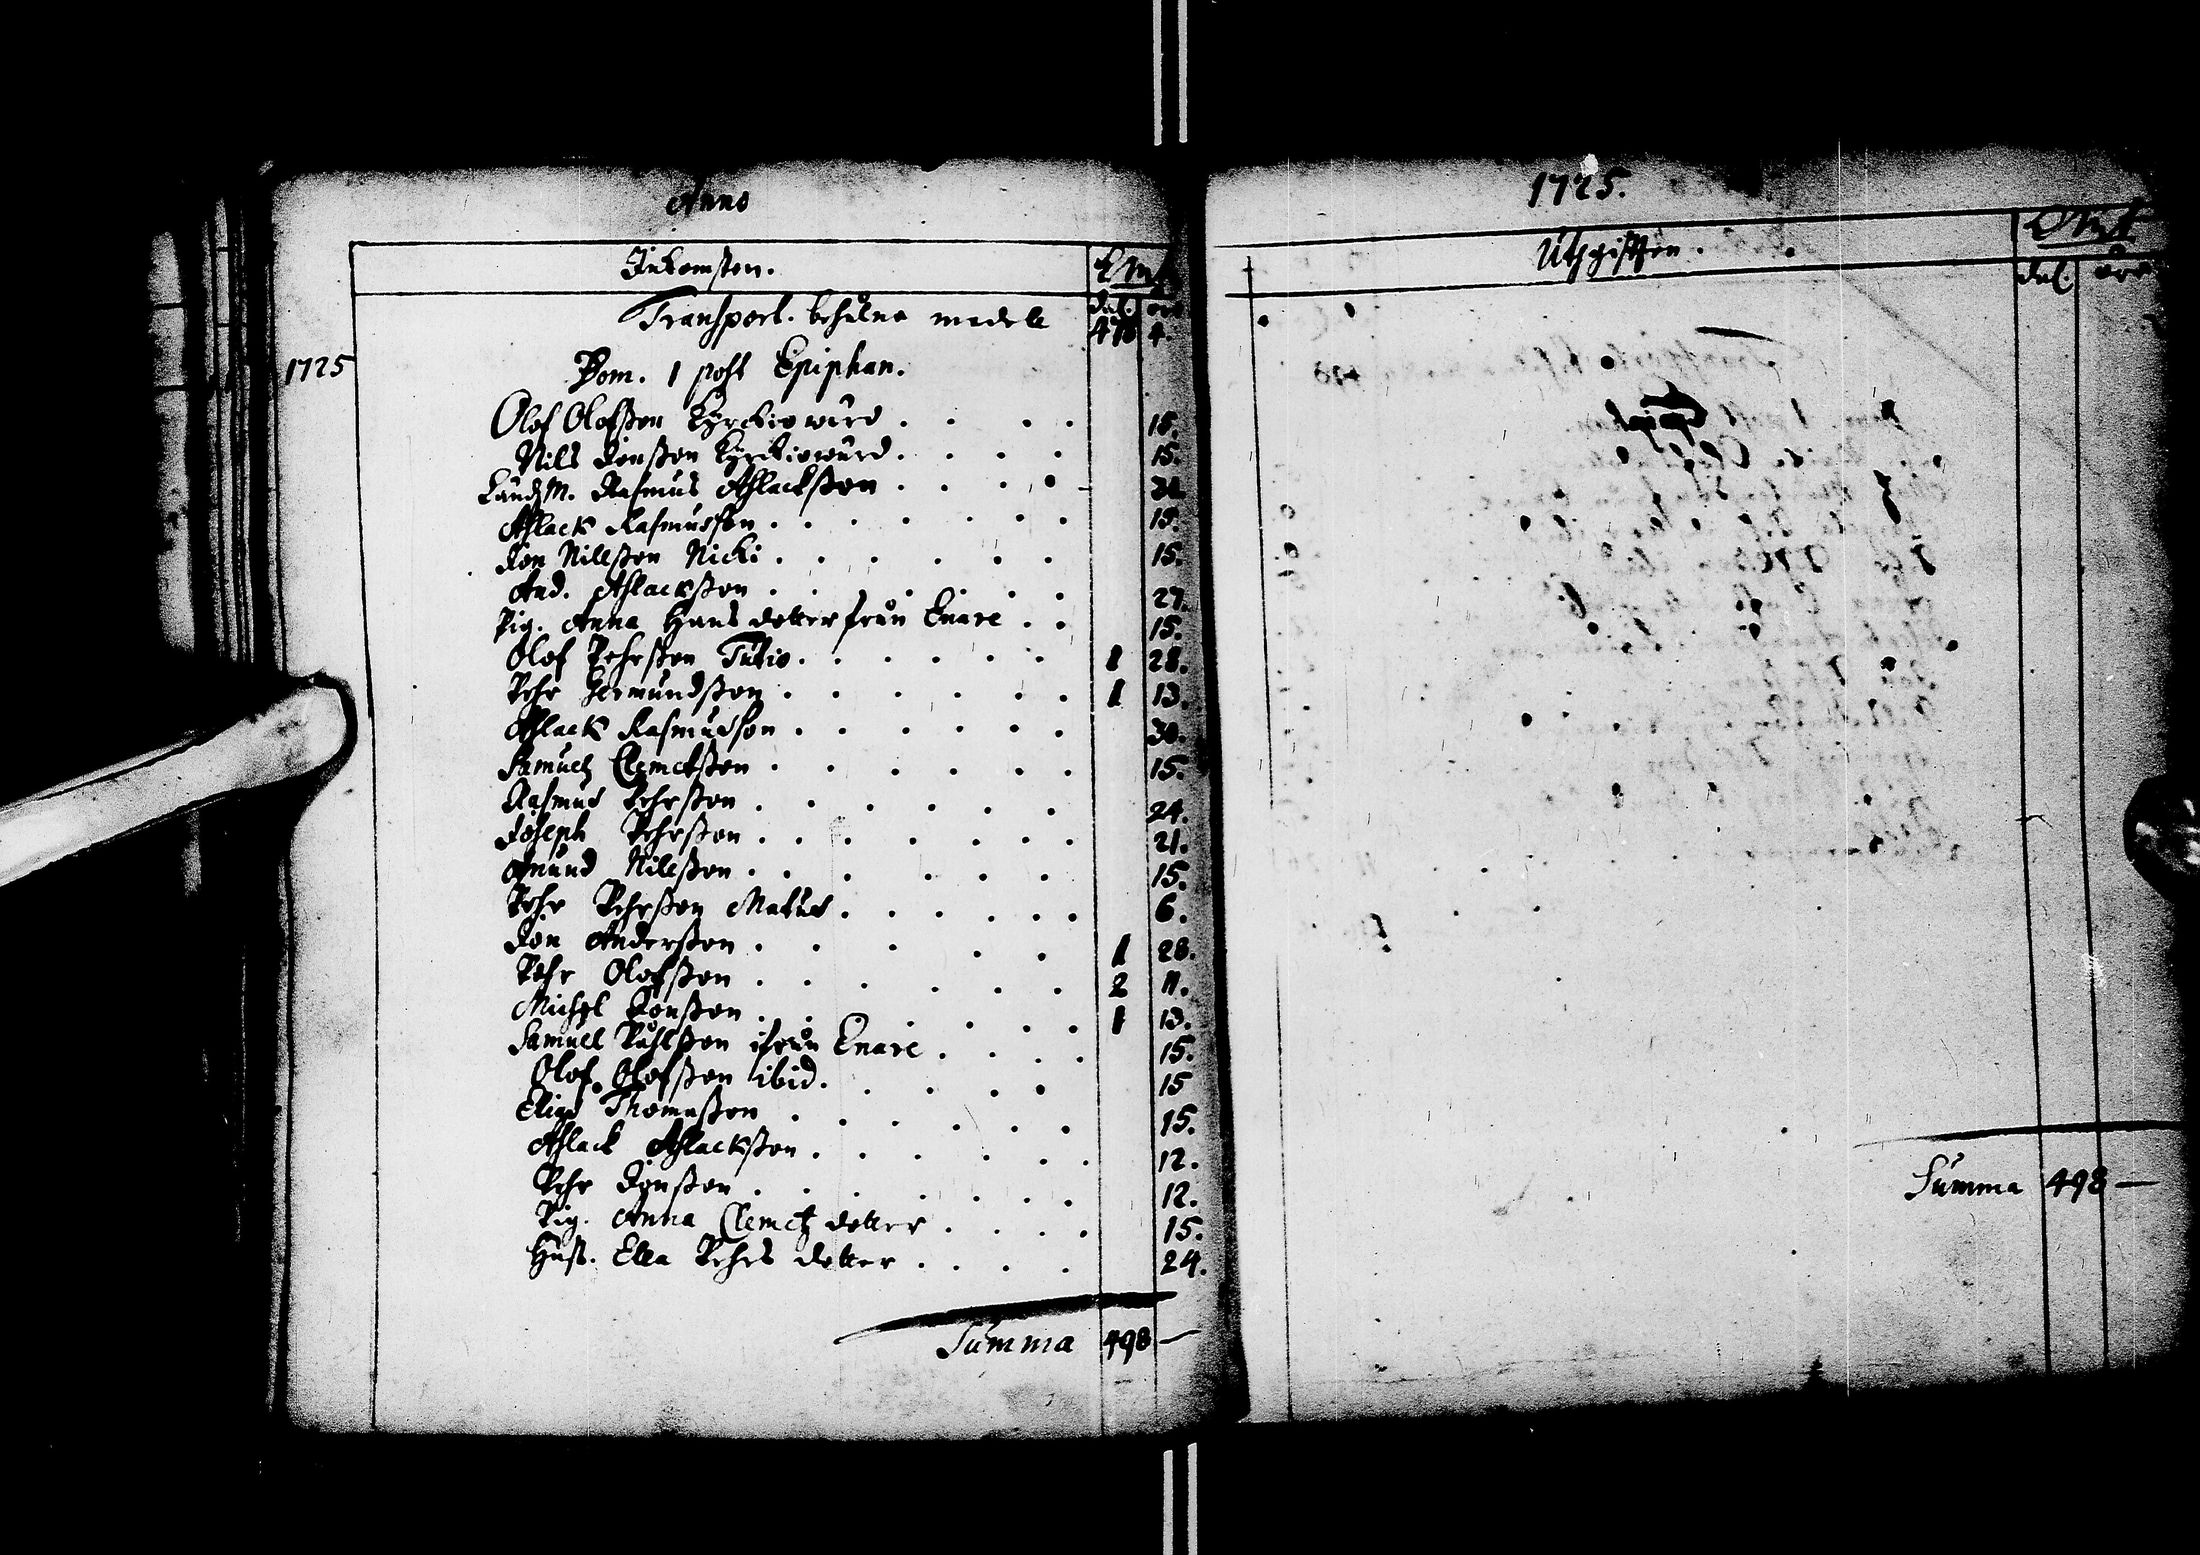 Anno
Inkomsten.
Transport. behålne medell 478 4.
1725
Dom. 1 post Epiphan.
Olof Olofßon Kyrckiowärd . . . . 15.
Nils Jonßon Kyrckiowärd . . . . 15.
LändzM. Rasmus Aßlackßon . . . .
Aslack Rasmusson . . . . . . 15.
Jon Nillßon Nicki . . . . . . 15.
And. Aslackßon . . . . . . 27.
Pig. Anna Hans dotter från Enare . . 15.
Olof Pehrßon . . . . . . 1 28.
Pehr . . . . . . 1 13.
Aslack Rasmusson . . . . . . 30.
Samuel Clemetßon . . . . . . 15.
Rasmus Pehrßon . . . . . . 24.
Joseph Pehrßon . . . . . . 21.
Amund Nilsßon . . . . . . 15.
Pehr Pehrßon . . . . . . 6.
Jon Anderßon . . . . . 1 28.
Pehr Olofßon . . . . . . 2 11.
Michel Jonßon . . . . . . 1 13.
Samuel Påhlßon ifrån Enare . . . . 15.
Olof Olofßon ibid. . . . . . 15
Thomaßon . . . . . . 15.
Aslack Aslackßon . . . . . . 12.
Pehr Jonßon . . . . . . 12.
Pig. Anna Clemetz dotter . . . . 15.
Hust. Ella Pehrs dotter . . . . 24.
Summa 498 —
1725.
Uthgifften.
dal. öre
Summa 498 —